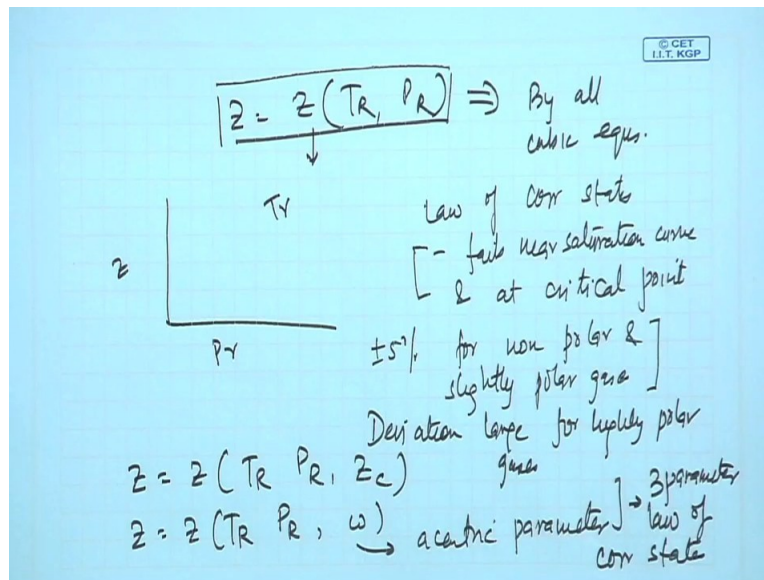 © CET
I.I.T. KGP
Z = Z (TR, PR) ⇒ By all
cubic equs.
Tr
Z
Pr
Law of Corr states
[ - fails near saturation curve
& at critical point
±5% for non polar &
slightly polar gases ]
Deviation large for highly polar
gases
Z = Z ( TR PR, Zc )
Z = Z (TR PR, ω) → acentric parameter ] → 3 parameter
law of
corr state